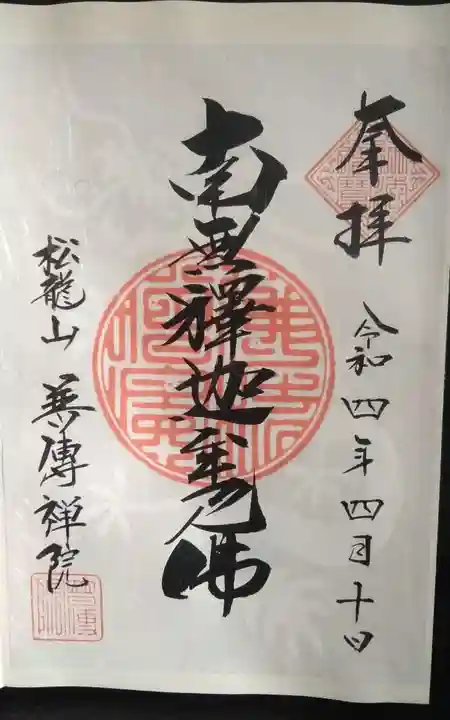 奉拝
令和四年四月十日
南無釋迦牟尼佛
松龍山 傳禅院